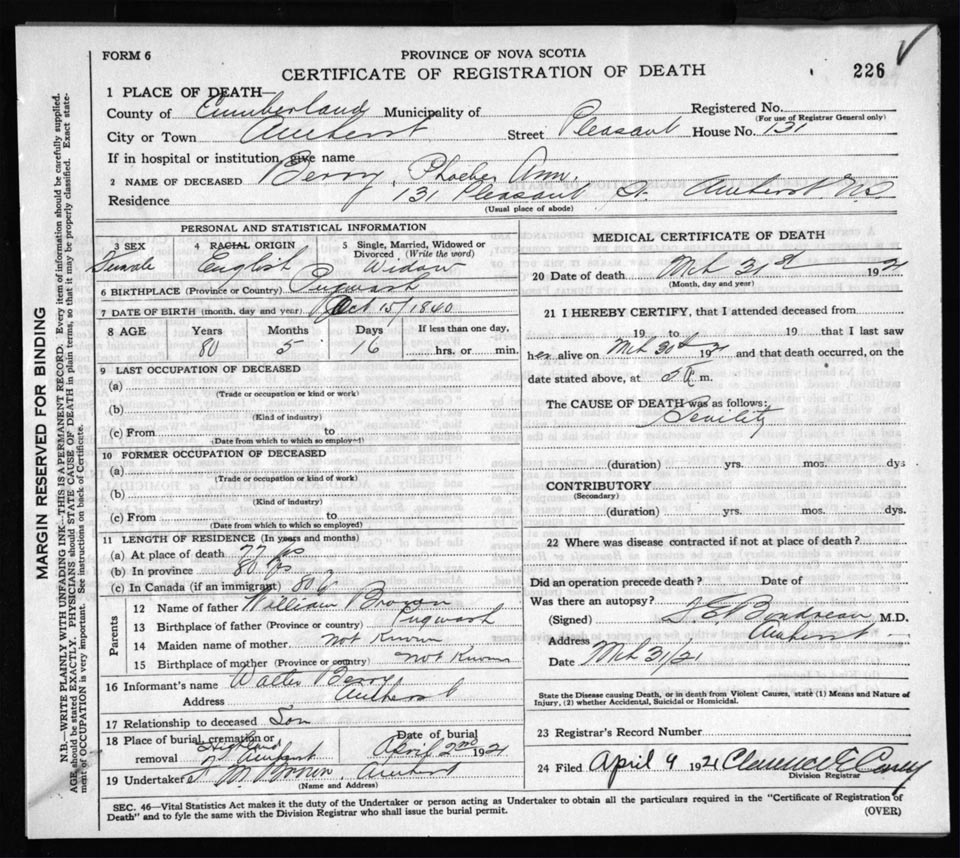 FORM 6
PROVINCE OF NOVA SCOTIA
CERTIFICATE OF REGISTRATION OF DEATH
226
1 PLACE OF DEATH
County of Cumberland Municipality of Registered No.
(For use of Registrar General only)
City or Town Amherst Street Pleasant House No. 131
If in hospital or institution, give name
2 NAME OF DECEASED Berry, Phoebe Ann.
Residence 131 Pleasant St. Amherst N.S.
(Usual place of abode)
PERSONAL AND STATISTICAL INFORMATION
3 SEX 4 RACIAL ORIGIN 5 Single, Married, Widowed or Divorced (Write the word)
Female English Widow
6 BIRTHPLACE (Province or Country) Pugwash
7 DATE OF BIRTH (month, day and year) Oct 15/1840
8 AGE Years Months Days If less than one day,
80 5 16 hrs. or min.
9 LAST OCCUPATION OF DECEASED
(a)
(Trade or occupation or kind or work)
(b)
(Kind of industry)
(c) From to
(Date from which to which so employed)
10 FORMER OCCUPATION OF DECEASED
(a)
(Trade or occupation or kind of work)
(b)
(Kind of industry)
(c) From to
(Date from which to which so employed)
11 LENGTH OF RESIDENCE (In years and months)
(a) At place of death 77 yrs
(b) In province 80 yrs
(c) In Canada (if an immigrant) 80 y
Parents
12 Name of father William Brown
13 Birthplace of father (Province or country) Pugwash
14 Maiden name of mother not Known
15 Birthplace of mother (Province or country) not Known
16 Informant's name Walter Berry
Address Amherst
17 Relationship to deceased Son
18 Place of burial, cremation or removal Highland Amherst
Date of burial April 2nd 1921
19 Undertaker Brown, Amherst
(Name and Address)
MEDICAL CERTIFICATE OF DEATH
20 Date of death Mch 31st 1921
(Month, day and year)
21 I HEREBY CERTIFY, that I attended deceased from
19 to 19 that I last saw
her alive on Mch 30th 1921 and that death occurred, on the
date stated above, at 5 a. m.
The CAUSE OF DEATH was as follows:
Senility
(duration) yrs. mos. dys
CONTRIBUTORY
(Secondary)
(duration) yrs. mos. dys.
22 Where was disease contracted if not at place of death?
Did an operation precede death? Date of
Was there an autopsy?
(Signed) M.D.
Address Amherst
Date Mch 31/21
State the Disease causing Death, or in death from Violent Causes, state (1) Means and Nature of
Injury, (2) whether Accidental, Suicidal or Homicidal.
23 Registrar's Record Number
24 Filed April 9 1921 Clarence E Casey
Division Registrar
SEC. 46—Vital Statistics Act makes it the duty of the Undertaker or person acting as Undertaker to obtain all the particulars required in the "Certificate of Registration of
Death" and to fyle the same with the Division Registrar who shall issue the burial permit.
(OVER)
MARGIN RESERVED FOR BINDING
N.B.—WRITE PLAINLY WITH UNFADING INK—THIS IS A PERMANENT RECORD. Every item of information should be carefully supplied.
AGE should be stated EXACTLY. PHYSICIANS should STATE CAUSE OF DEATH in plain terms, so that it may be properly classified. Exact state-
ment of OCCUPATION is very important. See instructions on back of Certificate.